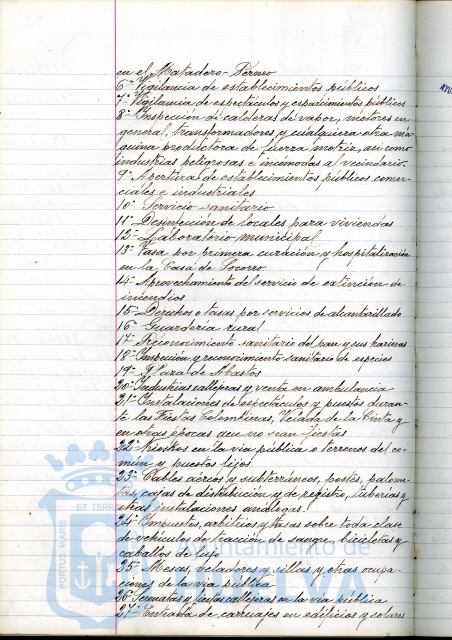 en el Matadero-Perneo
6ª Vigilancia de establecimientos públicos
7ª Vigilancia de espectáculos y esparcimientos públicos
8ª Inspección de calderas de vapor, motores en
general, transformadores y cualquiera otra má
quina productora de fuerza motriz, así como
industrias peligrosas e incómodas al vecindario.
9ª Apertura de establecimientos públicos, comer-
ciales e industriales
10ª Servicio sanitario
11ª Desinfección de locales para viviendas
12ª Laboratorio municipal
13ª Tasa por primera curación y hospitalización
en la Casa de Socorro
14ª Aprovechamiento del servicio de extinción de
incendios
15ª Derechos o tasas por servicios de alcantarillado
16ª Guardería rural
17ª Reconocimiento sanitario del pan y sus harinas
18ª Inspección y reconocimiento sanitario de especies
19ª Plaza de Abastos
20ª Industrias callejeras y venta en ambulancia
21ª Instalaciones de espectáculos y puestos duran-
te las Fiestas Colombinas, Velada de la Cinta y
en otras épocas que no sean fiestas
22ª Kioskos en la vía pública o terrenos del co-
mún y puestos fijos
23ª Cables aéreos y subterráneos, postes, palomi-
llas, cajas de distribución y de registro, tuberías y
otras instalaciones análogas.
24ª Impuestos, arbitrios y tasas sobre toda clase
de vehículos de tracción de sangre, bicicletas y
caballos de lujo
25ª Mesas, veladores y sillas y otras ocupa-
ciones de la vía pública
26ª Serenatas y fiestas callejeras en la vía pública
27ª Entrada de carruajes en edificios y solares
ET TERRE
PORTUS MARIS
Ayuntamiento de